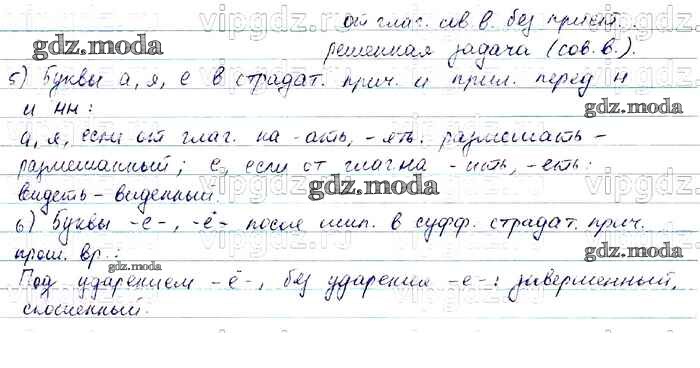 от глаг. сов. в. без прист.
решенная задача (сов. в.).
5) Буквы а, я, е в страдат. прич. и прил. перед н
и нн:
а, я, если от глаг. на -ать, -ять: размешать -
размешанный; е, если от глаг. на -ить, -еть:
видеть - виденный.
6) Буквы -е-, -ё- после шип. в суфф. страдат. прич.
прош. вр.:
Под ударением -ё-, без ударения -е-: завершенный,
скошенный.
gdz.moda
gdz.moda
gdz.moda
gdz.moda
gdz.moda